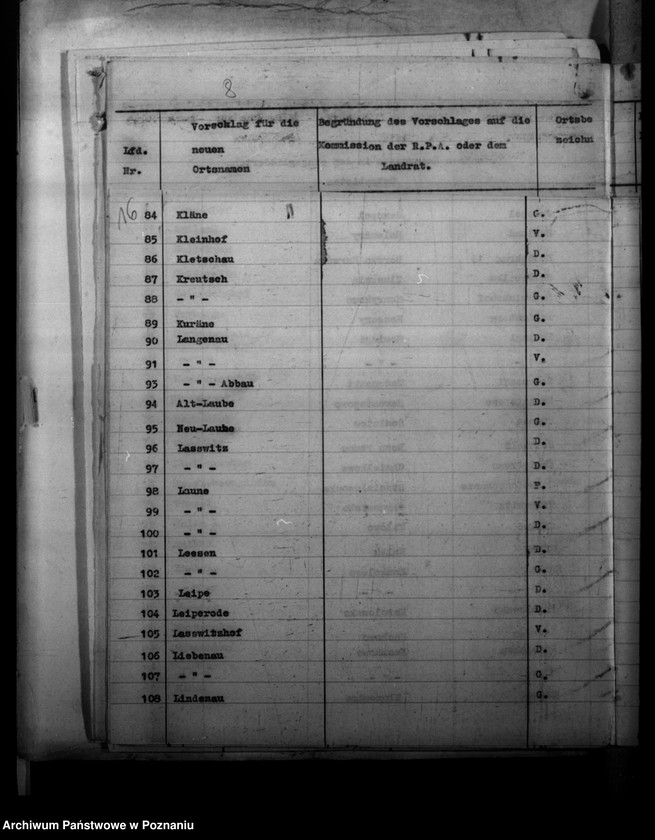 8
Vorschlag für die Begründung des Vorschlages auf die Ortsbe
Lfd. neuen Kommission der R.P.A. oder dem zeichn
Nr. Ortsnamen Landrat.
16 84 Kläne G.
85 Kleinhof V.
86 Kletschau D.
87 Kreutsch D.
88 - " - G.
89 Kuräne G.
90 Langenau D.
91 - " - V.
93 - " - Abbau G.
94 Alt-Laube D.
95 Neu-Laube G.
96 Lasswitz D.
97 - " - D.
98 Laune F.
99 - " - V.
100 - " - D.
101 Leesen D.
102 - " - G.
103 Leipe D.
104 Leiperode D.
105 Lasswitzhof V.
106 Liebenau D.
107 - " - G.
108 Lindenau G.
Archiwum Państwowe w Poznaniu